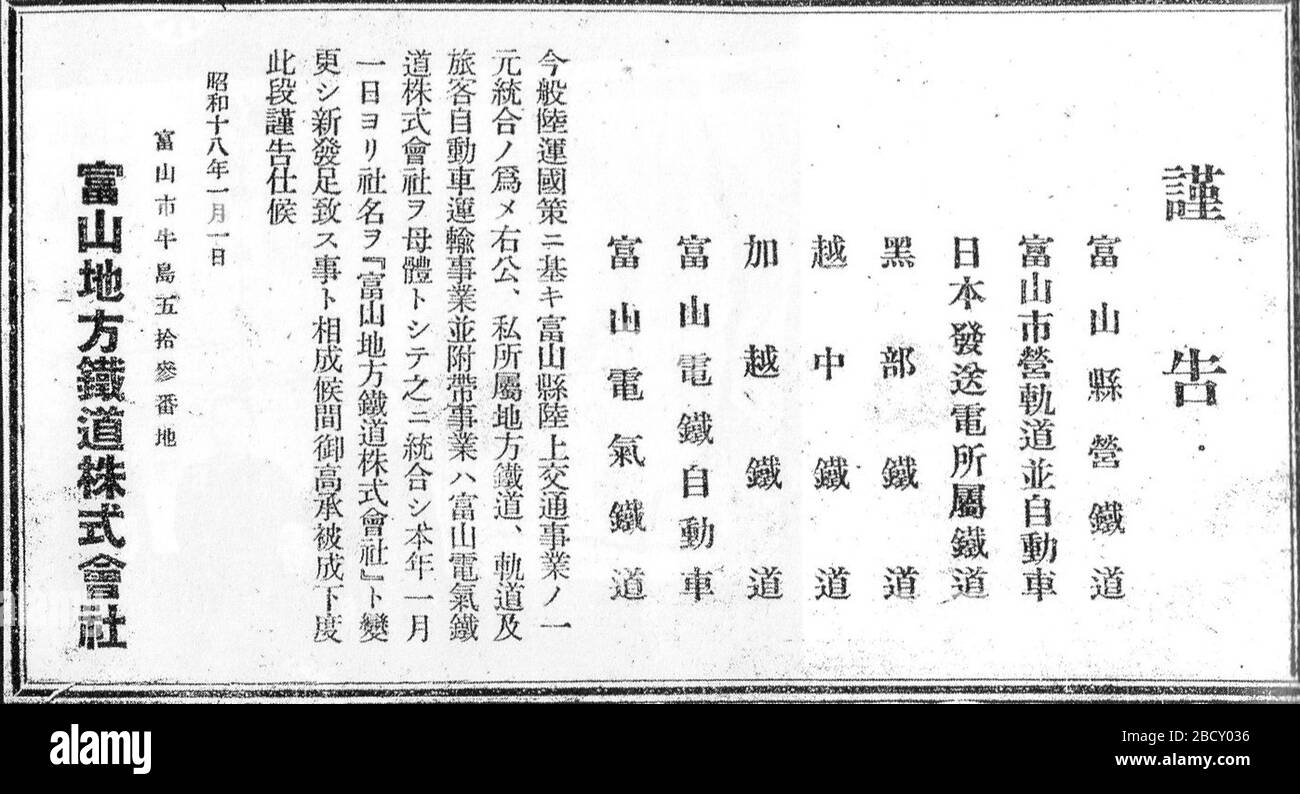 謹告
富山縣營鐵道
富山市營軌道並自動車
日本發送電所屬鐵道
黑部鐵道
越中鐵道
加越鐵道
富山電鐵自動車
富山電氣鐵道
今般陸運國策ニ基キ富山縣陸上交通事業ノ一
元統合ノ爲メ右公、私所屬地方鐵道、軌道及
旅客自動車運輸事業並附帶事業ハ富山電氣鐵
道株式會社ヲ母體トシテ之ニ統合シ本年一月
一日ヨリ社名ヲ『富山地方鐵道株式會社』ト變
更シ新發足致ス事ト相成候間御高承被成下度
此段謹告仕候
昭和十八年一月一日
富山市牛島五拾參番地
富山地方鐵道株式會社
alamy
Image ID: 2BCY036
www.alamy.com